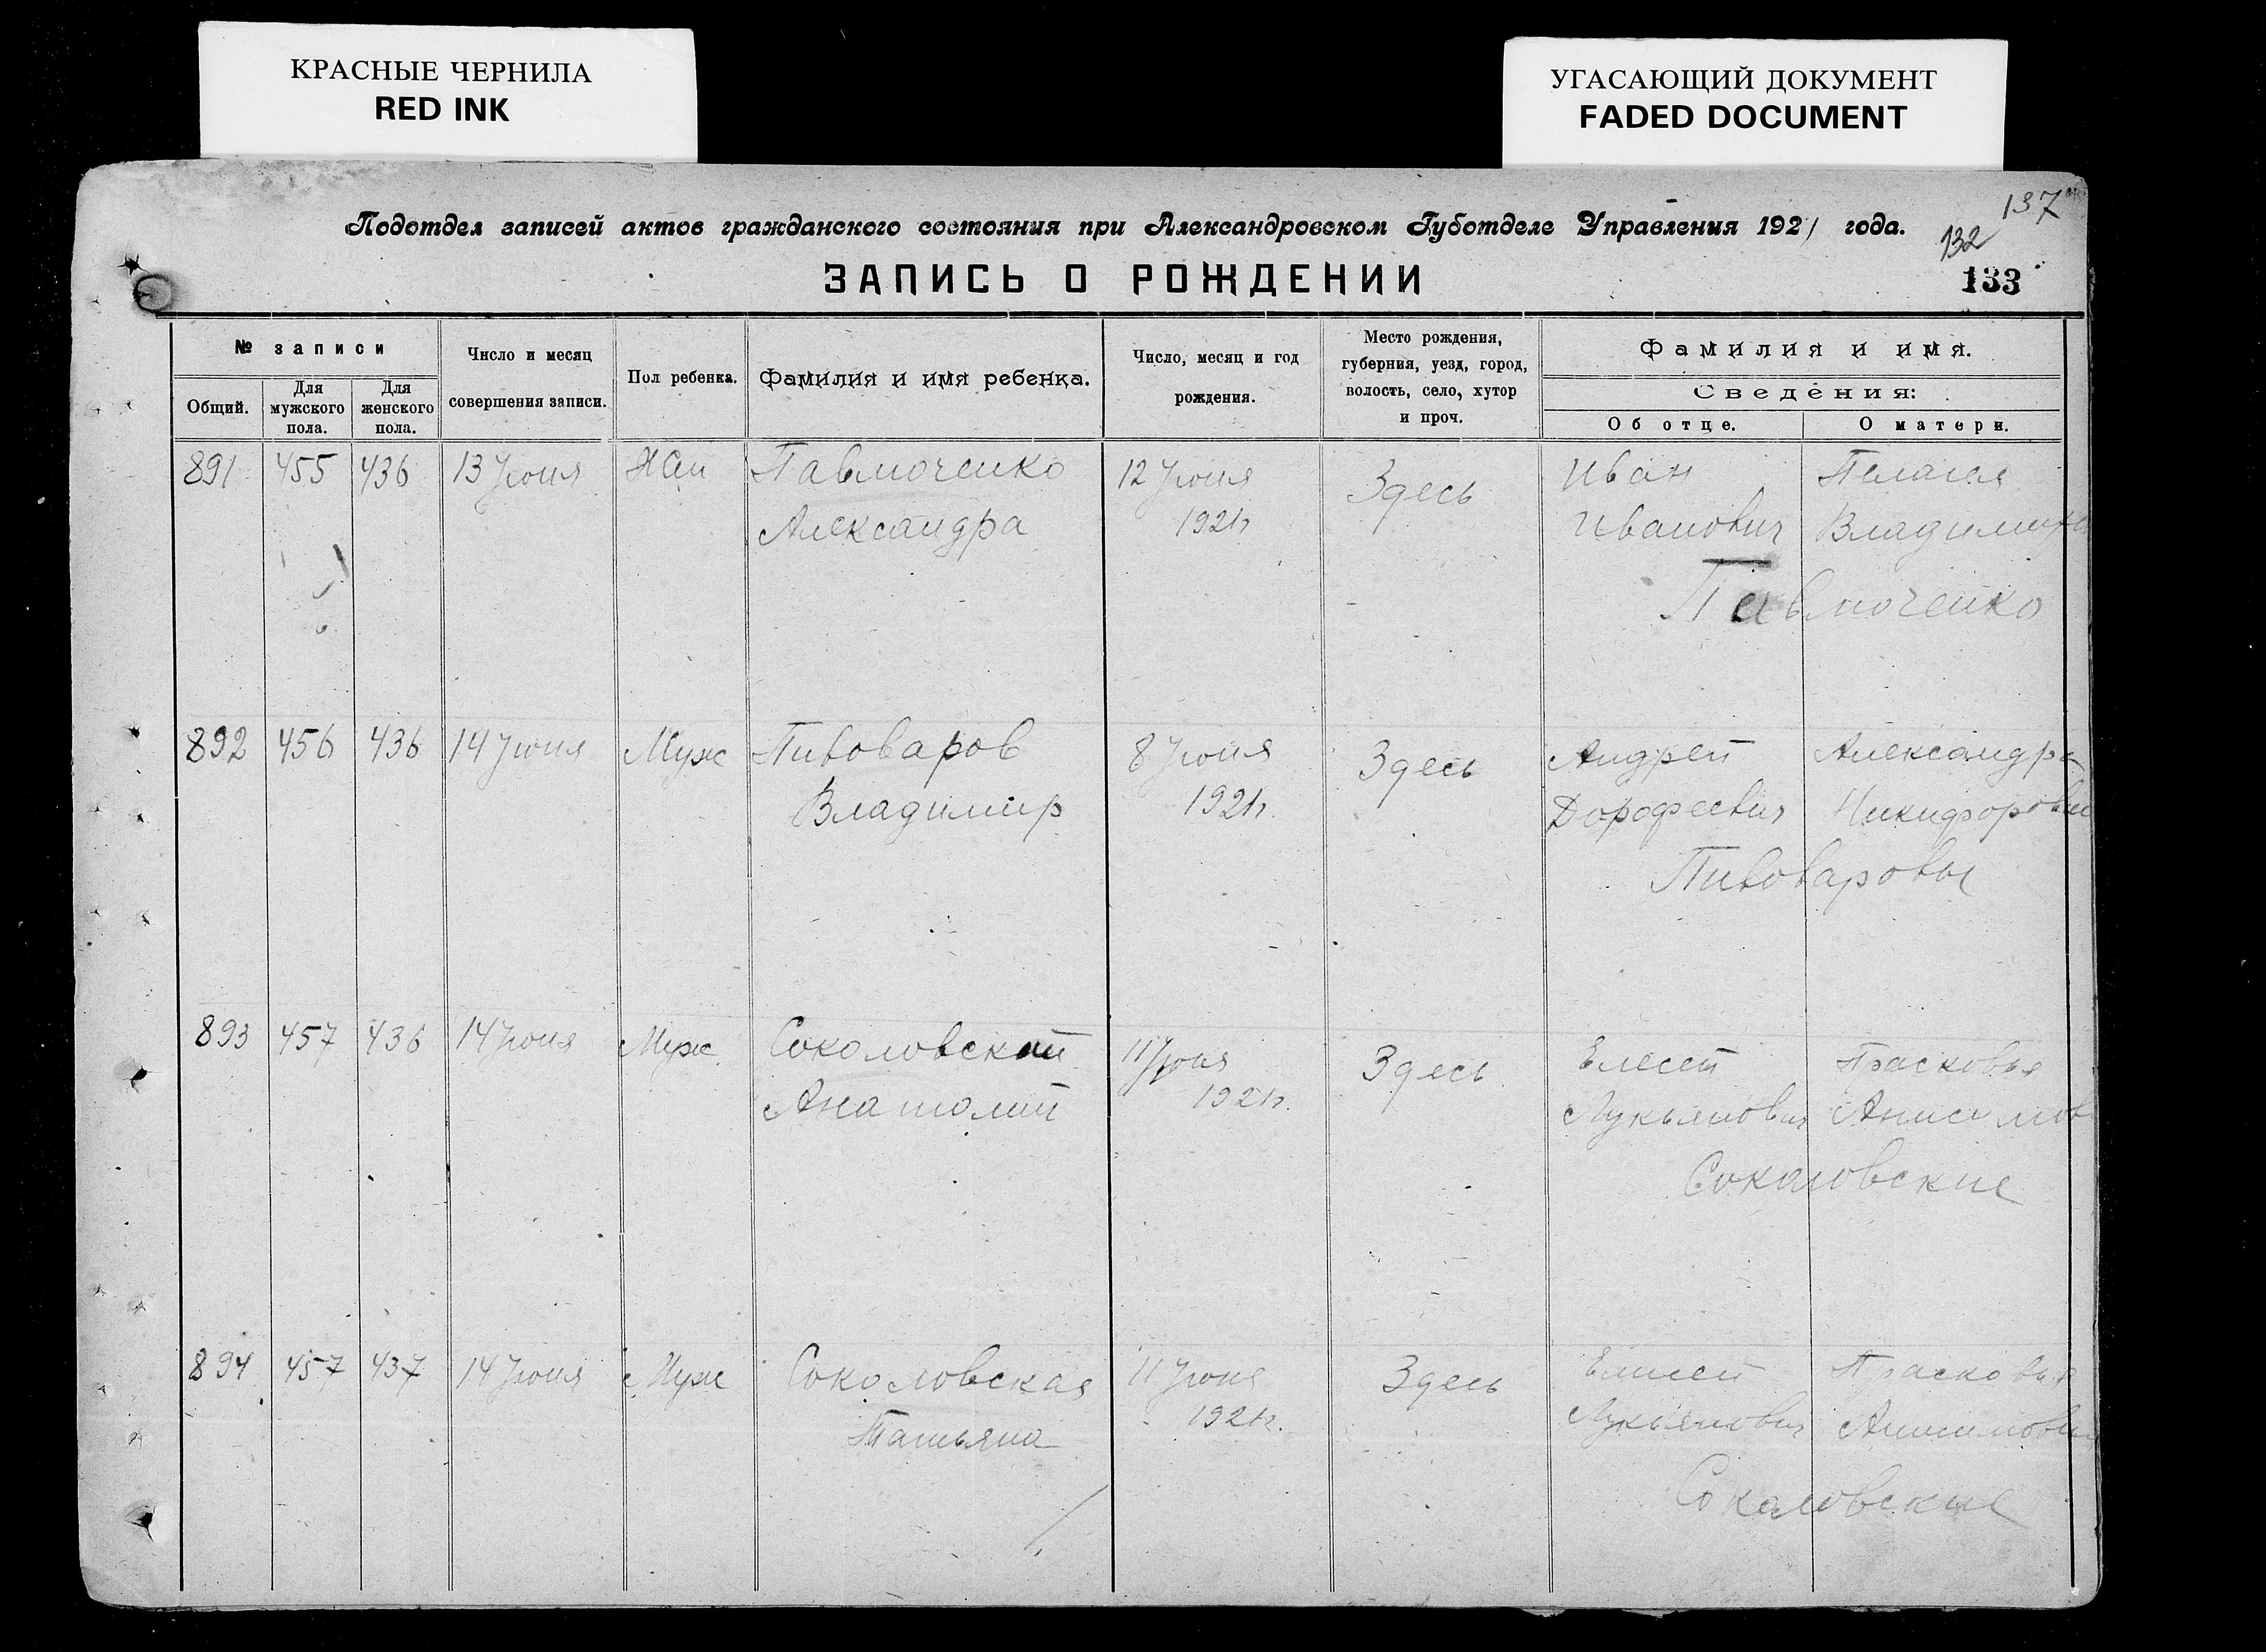 КРАСНЫЕ ЧЕРНИЛА
RED INK
УГАСАЮЩИЙ ДОКУМЕНТ
FADED DOCUMENT
137
Подотдел записей актов гражданского состояния при Александровском Губотделе Управления 1921 года.
132
ЗАПИСЬ О РОЖДЕНИИ
133
№ записи
Общий.
Для мужского пола.
Для женского пола.
Число и месяц совершения записи.
Пол ребенка.
Фамилия и имя ребенка.
Число, месяц и год рождения.
Место рождения, губерния, уезд, город, волость, село, хутор и проч.
Фамилия и имя.
Сведения:
Об отце.
О матери.
891 455 436 13 Июня Жен Павлюченко 12 Июня Здесь Иван Пелагея
Александра 1921г Иванович Владимиро
Павлюченко
892 456 436 14 Июня Муж Пивоваров 8 Июня Здесь Андрей Александра
Владимир 1921г. Дорофеевич Никифоровн
Пивоваровы
893 457 436 14 Июня Муж Соколовский 11 Июня Здесь Елесей Прасковья
Анатолий 1921г. Лукьянович Анисимов
Соколовские
894 457 437 14 Июня Муж Соколовская 11 Июня Здесь Елисей Прасковья
Татьяна 1921г. Лукьянович Анисимовн
Соколовские